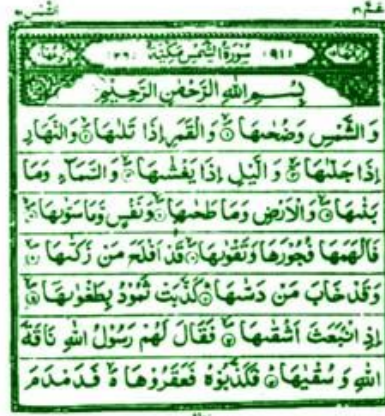 الشمس ٩١
عم ٣٠
سُوْرَةُ الشَّمْسِ مَكِّيَّةٌ
بِسْمِ اللهِ الرَّحْمٰنِ الرَّحِيْمِ
وَالشَّمْسِ وَضُحٰىهَا ۙ وَالْقَمَرِ اِذَا تَلٰىهَا ۙ وَالنَّهَارِ
اِذَا جَلّٰىهَا ۙ وَالَّيْلِ اِذَا يَغْشٰىهَا ۙ وَالسَّمَآءِ وَمَا
بَنٰىهَا ۙ وَالْاَرْضِ وَمَا طَحٰىهَا ۙ وَنَفْسٍ وَّمَا سَوّٰىهَا ۙ
فَاَلْهَمَهَا فُجُوْرَهَا وَتَقْوٰىهَا ۙ قَدْ اَفْلَحَ مَنْ زَكّٰىهَا ۙ
وَقَدْ خَابَ مَنْ دَسّٰىهَا ؕ كَذَّبَتْ ثَمُوْدُ بِطَغْوٰىهَا ۙ
اِذِ انْۢبَعَثَ اَشْقٰىهَا ۙ فَقَالَ لَهُمْ رَسُوْلُ اللهِ نَاقَةَ
اللهِ وَسُقْيٰهَا ؕ فَكَذَّبُوْهُ فَعَقَرُوْهَا ۙ فَدَمْدَمَ